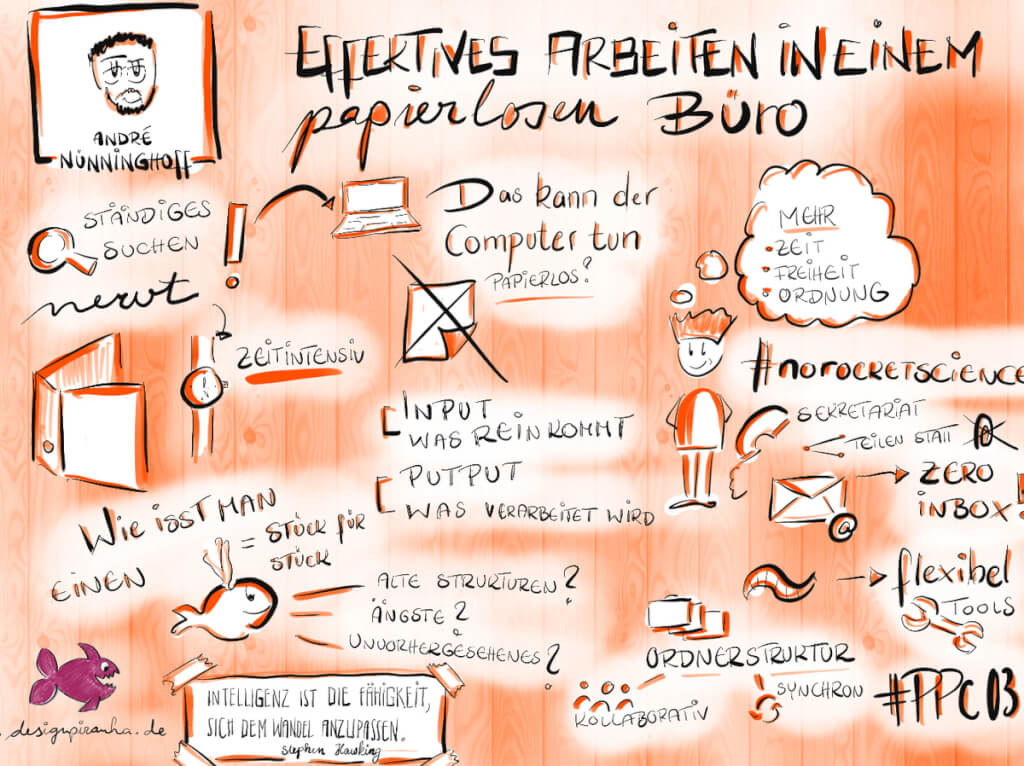 EFFEKTIVES ARBEITEN IN EINEM
papierlosen BÜRO
ANDRÉ
NÜNNINGHOFF
STÄNDIGES
SUCHEN
nervt !
Das kann der
Computer tun
PAPIERLOS?
MEHR
• ZEIT
• FREIHEIT
• ORDNUNG
ZEITINTENSIV
#NOROCKETSCIENCE
SEKRETARIAT
TEILEN STATT
INPUT
WAS REIN KOMMT
PUTPUT
WAS VERARBEITET WIRD
@
ZERO
INBOX!
WIE ISST MAN
EINEN
= STÜCK FÜR
STÜCK
ALTE STRUKTUREN?
ÄNGSTE?
UNVORHERGESEHENES?
flexibel
TOOLS
ORDNERSTRUKTUR
KOLLABORATIV
SYNCHRON
#PPC03
INTELLIGENZ IST DIE FÄHIGKEIT,
SICH DEM WANDEL ANZUPASSEN.
Stephen Hawking
designpiranha.de